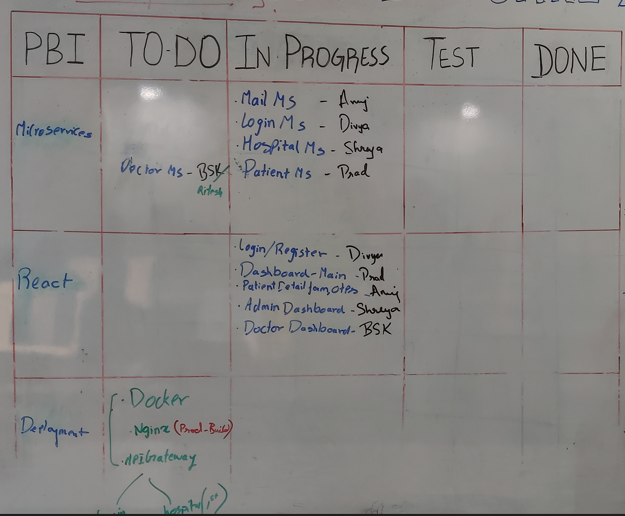 PBI
TO-DO
IN PROGRESS
TEST
DONE
Microservices
Doctor Ms - BSK/
Ritesh
· Mail Ms - Anuj
· Login Ms - Divya
· Hospital Ms - Shreya
· Patient Ms - Prad
React
· Login/Register - Divya
· Dashboard-Main - Prad
· Patient Detail - Anuj
· Admin Dashboard - Shreya
· Doctor Dashboard - BSK
Deployment
· Docker
· Nginx (Prod-Build)
· API Gateway